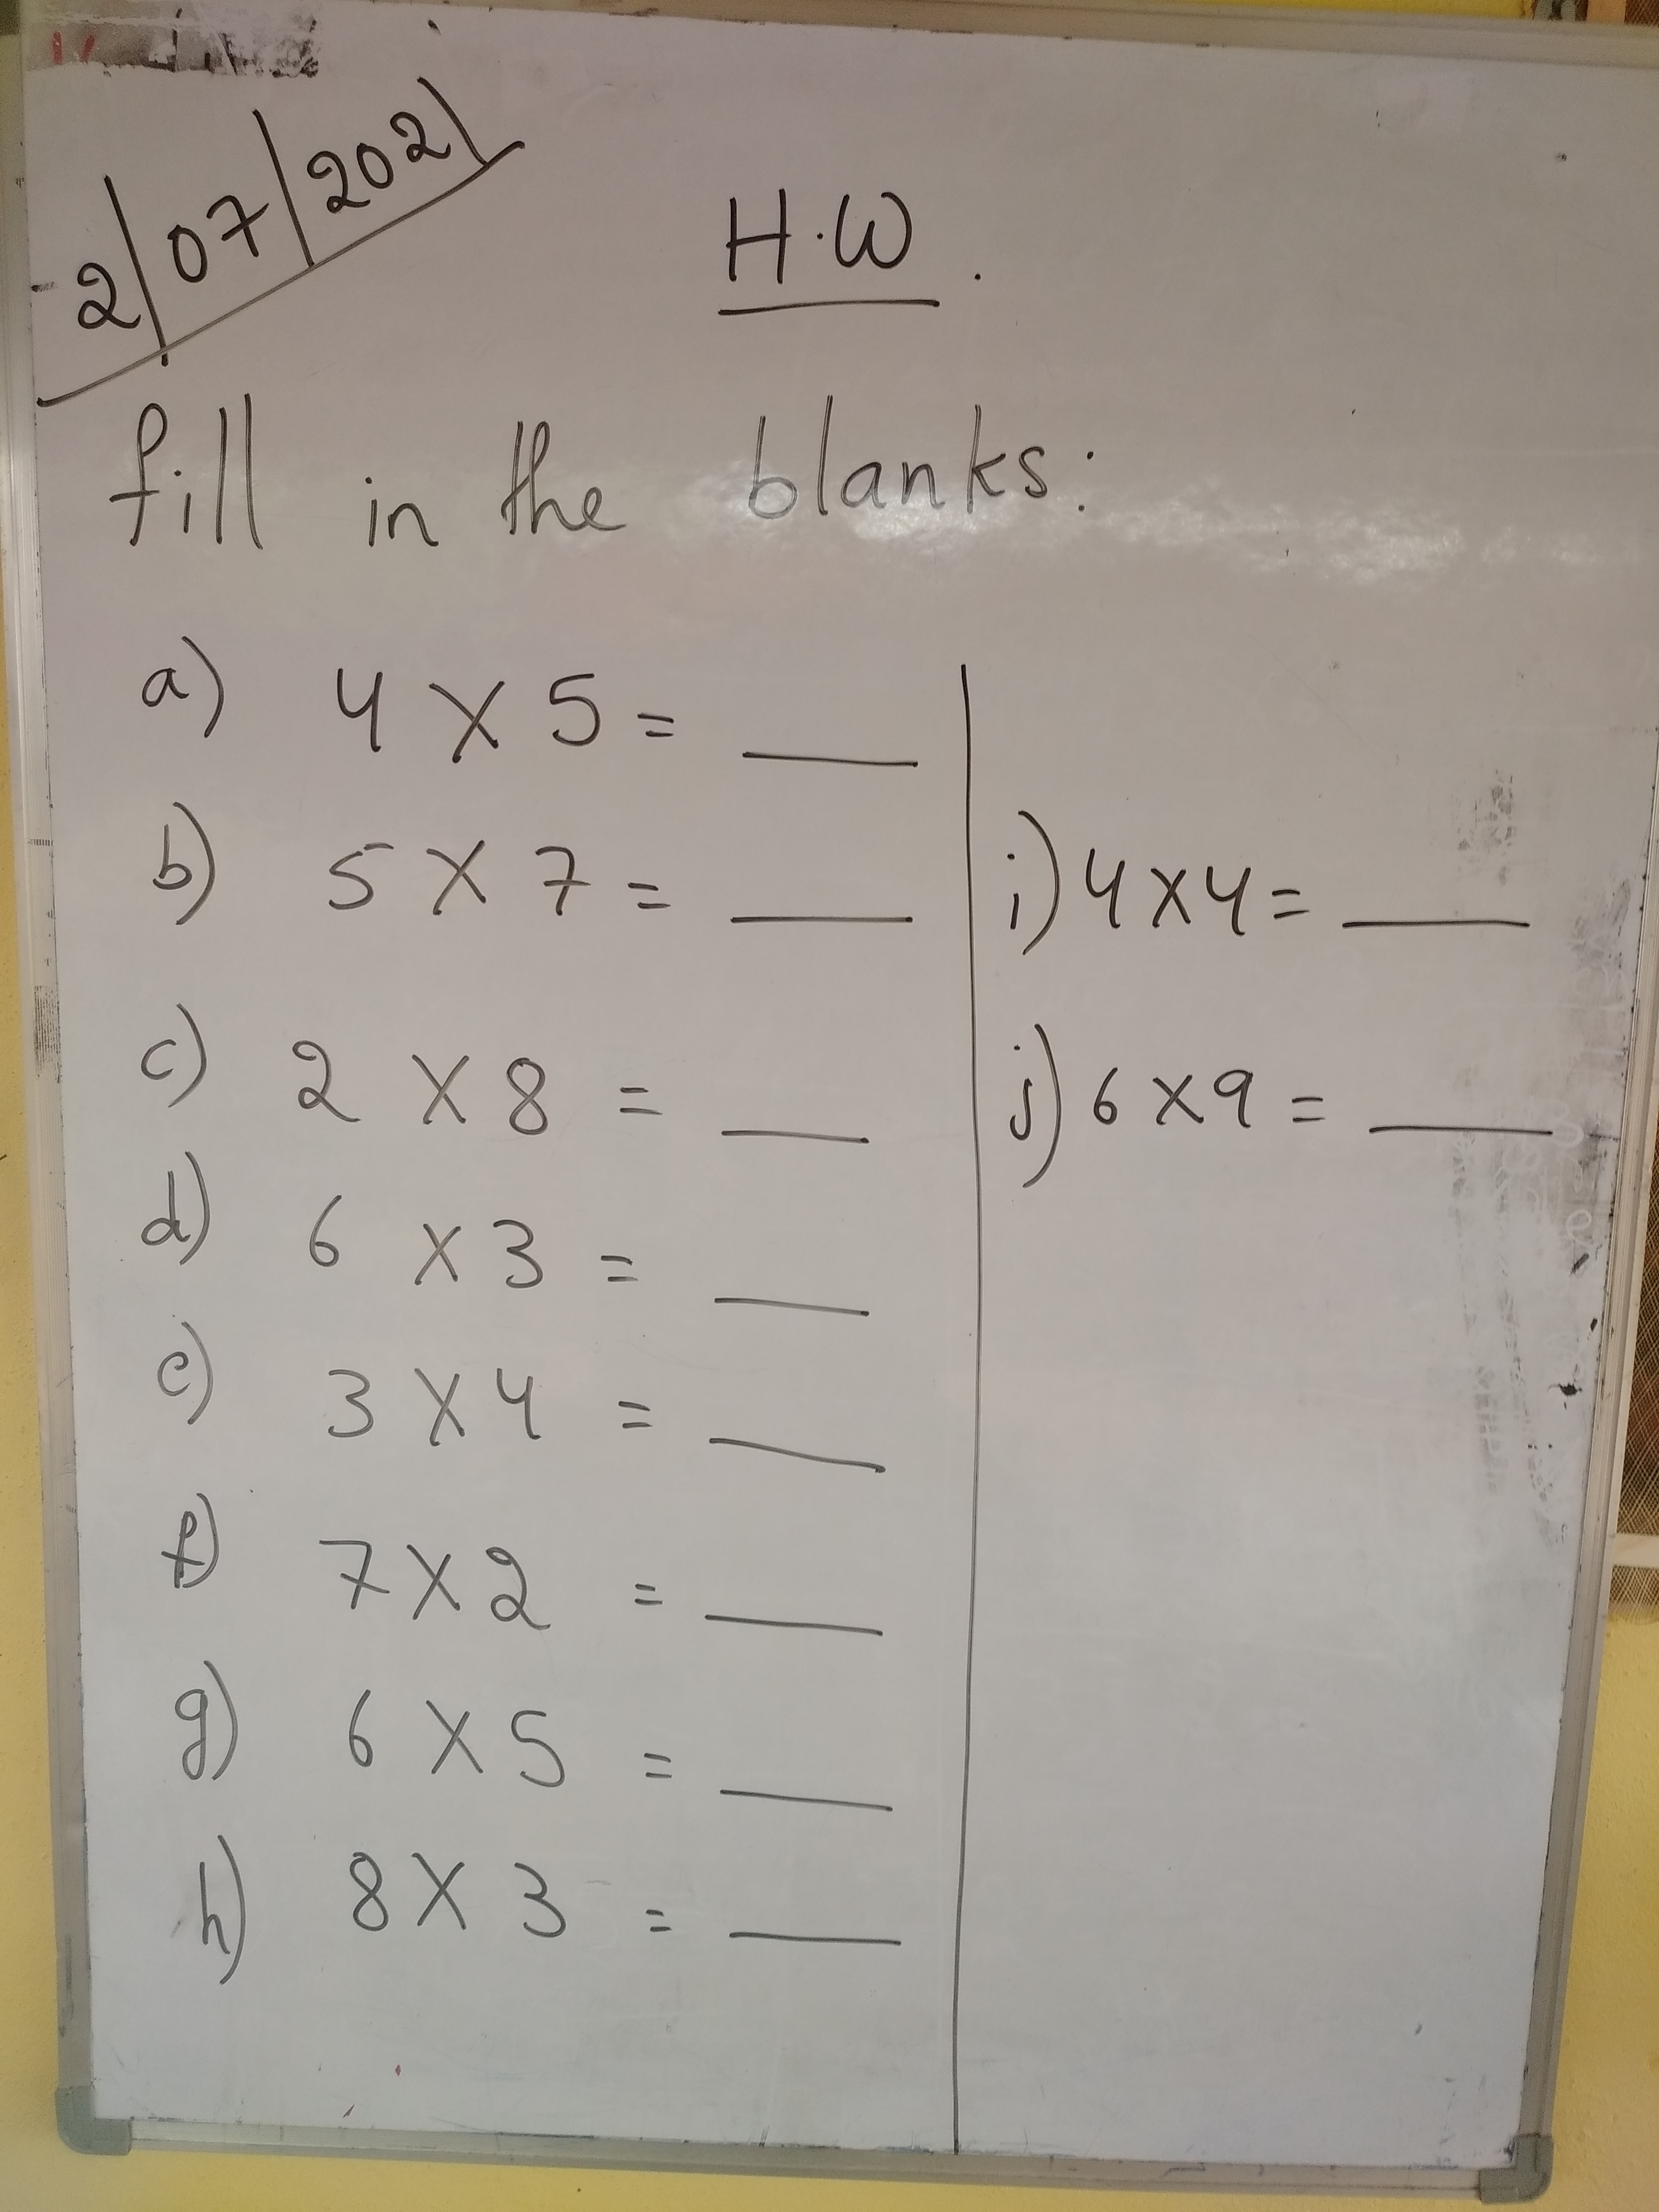 2/07/2021
H.W.
fill in the blanks:
a) 4 X 5 = ___
b) 5 X 7 = ___
c) 2 X 8 = ___
d) 6 X 3 = ___
e) 3 X 4 = ___
f) 7 X 2 = ___
g) 6 X 5 = ___
h) 8 X 3 = ___
i) 4 X 4 = ___
j) 6 X 9 = ___